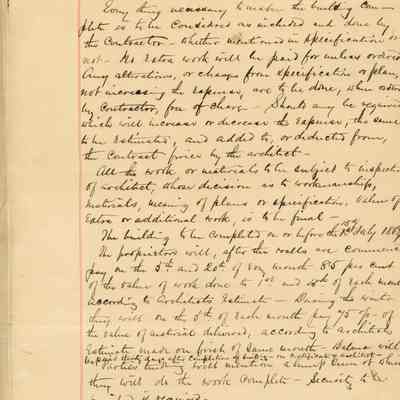 Every thing necessary to make the building com-
plete is to be Considered as included and done by
the Contractor - whether mentioned in specification or
not - No Extra work will be paid for unless ordered
Any alterations, or changes from specification or plan,
not increasing the Expense, are to be done, when
by Contractor, free of charge - Should any be required
which will increase or decrease the Expense, the same
to be Estimated, and added to, or deducted from,
the Contract price by the architect -
All the work or materials to be subject to inspection
of architect, whose decision as to workmanship,
materials, meaning of plans or specification, value of
Extra or additional work, is to be final -
The building to be Completed on or before the July
The proprietors will, after the walls are commenced
pay on the 5th and 20th of Every month 85 per cent
of the value of work done to 1st and of Each month
according to Architects Estimate - During the winter
they will on the 5th of Each month pay 75 % of
the value of material delivered, according to architects
Estimate made on finish of same month - Balance will
be paid days after Completion of building - on certificate of architect -
Parties will mention a sum for which
they will do the work Complete - Security to be